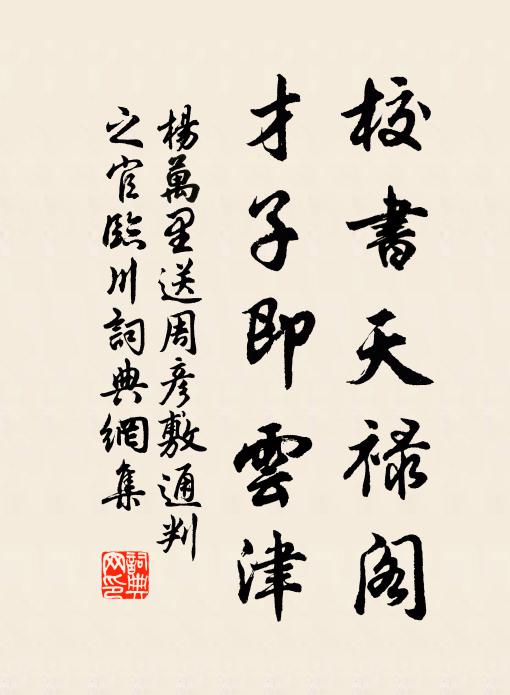 校書天禄閣
才子即雲津
楊萬里送周彥敷通判
之官臨川詞典網集
詞典网印